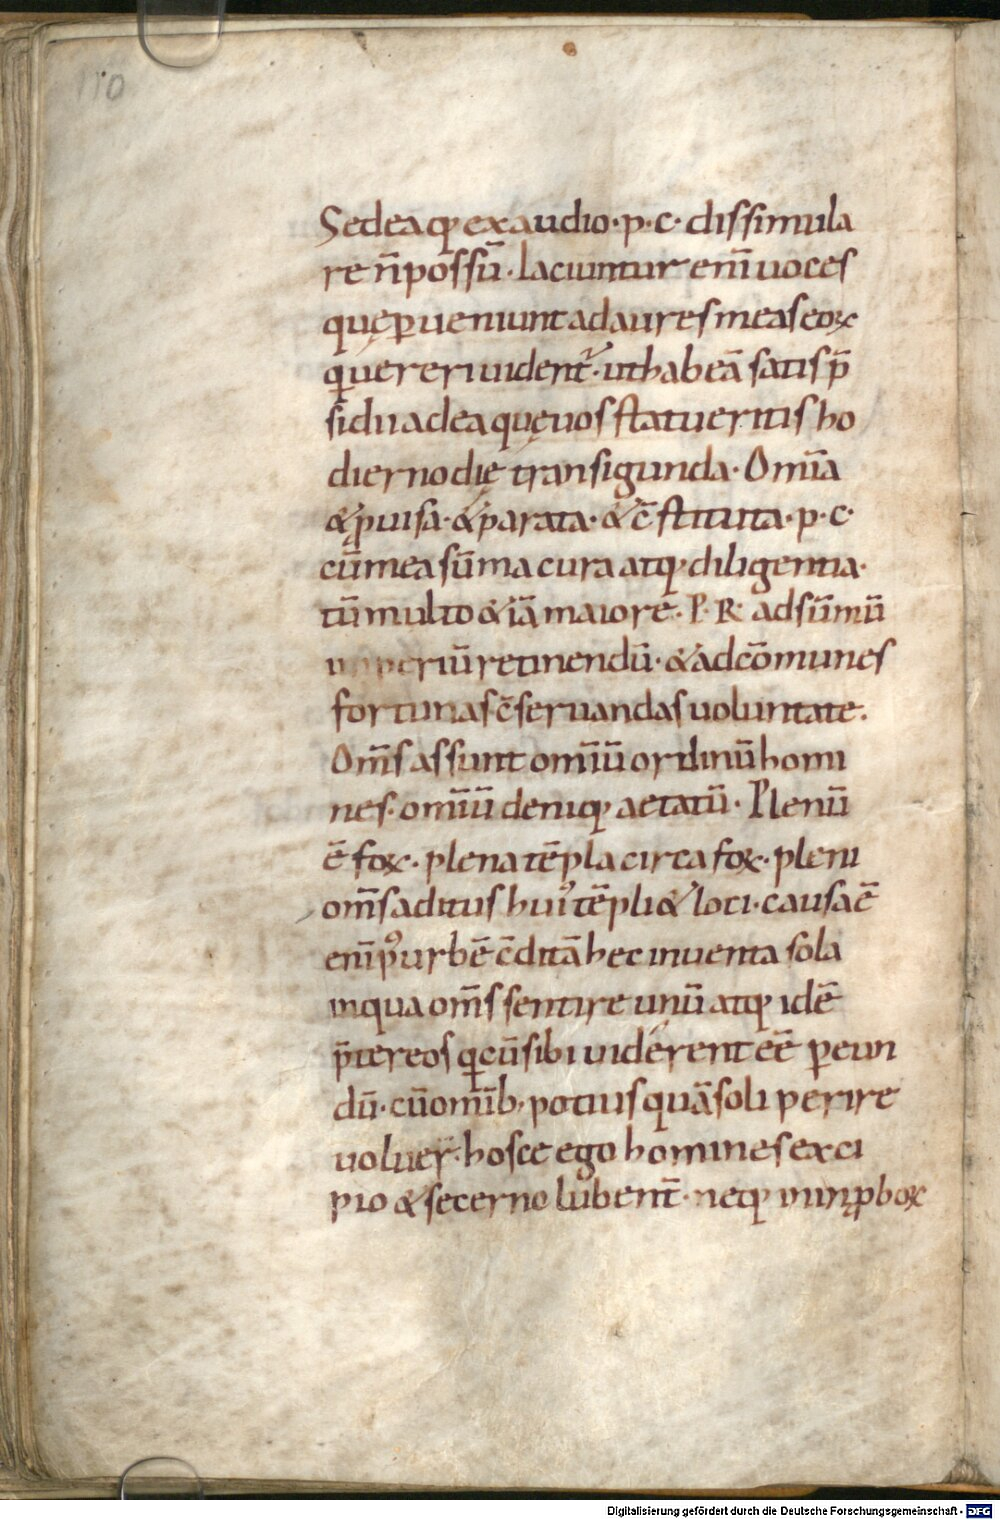 110
Sedeaq; exaudio·p·c· dissimula
re n̄ possū· Iaciuntur enī uoces
quę ꝑueniunt ad aures meas eoꝝ
qui uereri uident᷑· ut habeā satis p̄
sidii ad ea quę uos statueritis ho
dierno dię transigunda· Omīa
& ꝓuisa· & parata· & c̄stituta· p·c·
cū mea sūma cura atq; diligentia·
tū multo & iā maiore· P·R· ad sūmū
imperiū retinendū· & ad cōmunes
fortunas c̄seruandas uoluntate·
Om̄s assunt omīū ordinū homi
nes· omīū deniq; aetatū· Plenū
ē foꝝ· plena tēpla circa foꝝ· pleni
om̄s aditus huiꝰ tēpli & loci· causa ē
enī pꝰ urbē c̄ditā hec inuenta sola
in qua om̄s sentire unū atq; idē
p̄ter eos qi cū sibi uiderent eē ꝑeun
dū· cū omīb; potius quā soli perire
uoluer̄· hosce ego homines exci
pio & secerno lubent̄· neq; in inꝓboꝝ
Digitalisierung gefördert durch die Deutsche Forschungsgemeinschaft - DFG